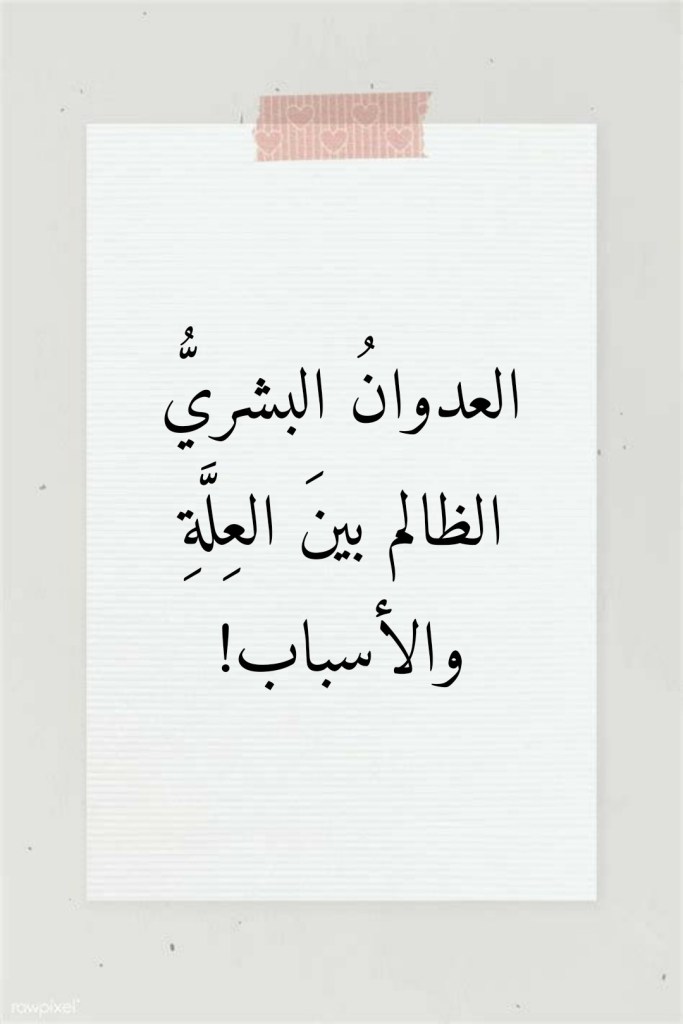 العدوانُ البشريُّ
الظالم بينَ العِلَّةِ
والأسباب!
rawpixel